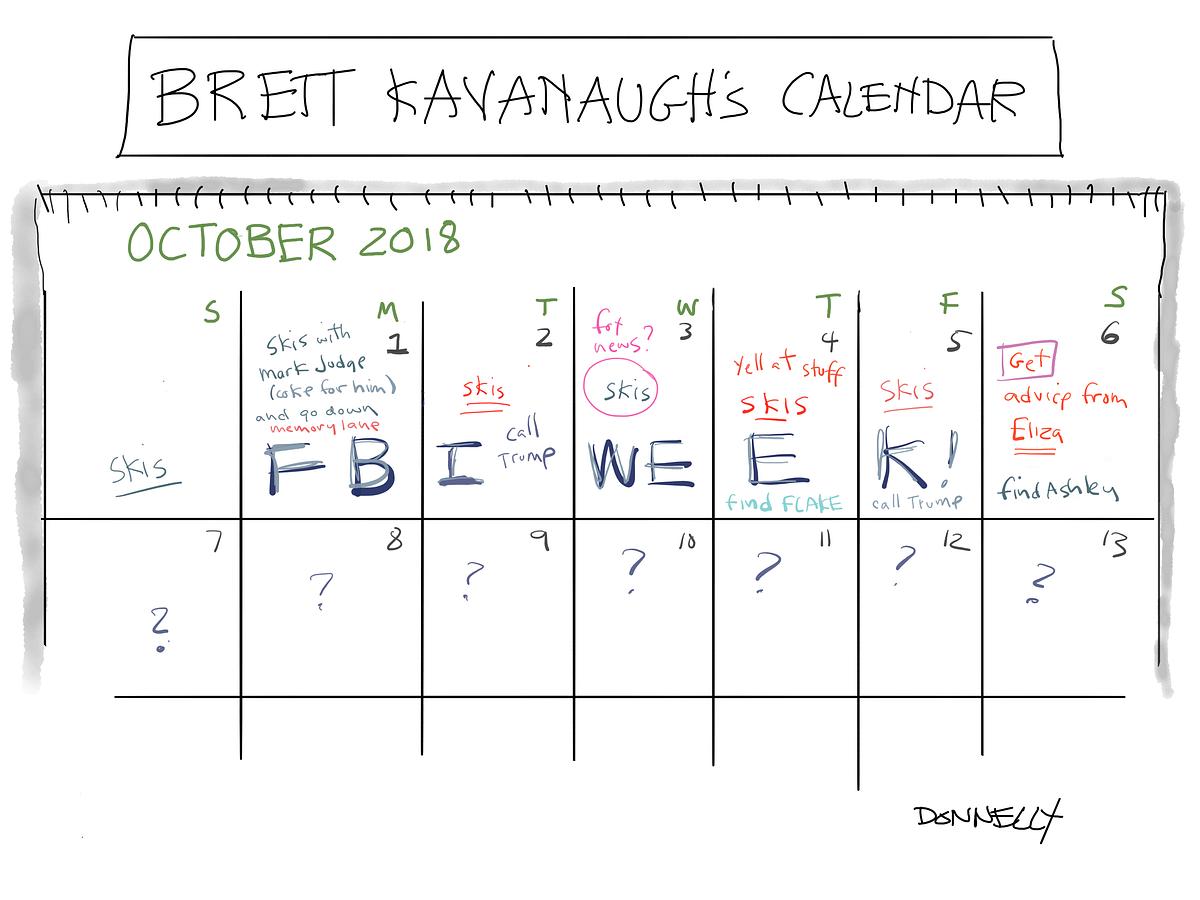 BRETT KAVANAUGH'S CALENDAR
OCTOBER 2018
S
skis
M
1
skis with
mark Judge
(coke for him)
and go down
memory lane
F B
T
2
skis
call
Trump
I
W
3
fox
news?
skis
WE
T
4
Yell at stuff
SKIS
E
find FLAKE
F
5
SKIS
K!
call Trump
S
6
Get
advice from
Eliza
find Ashley
7
?
8
?
9
?
10
?
11
?
12
?
13
?
DONNELLY